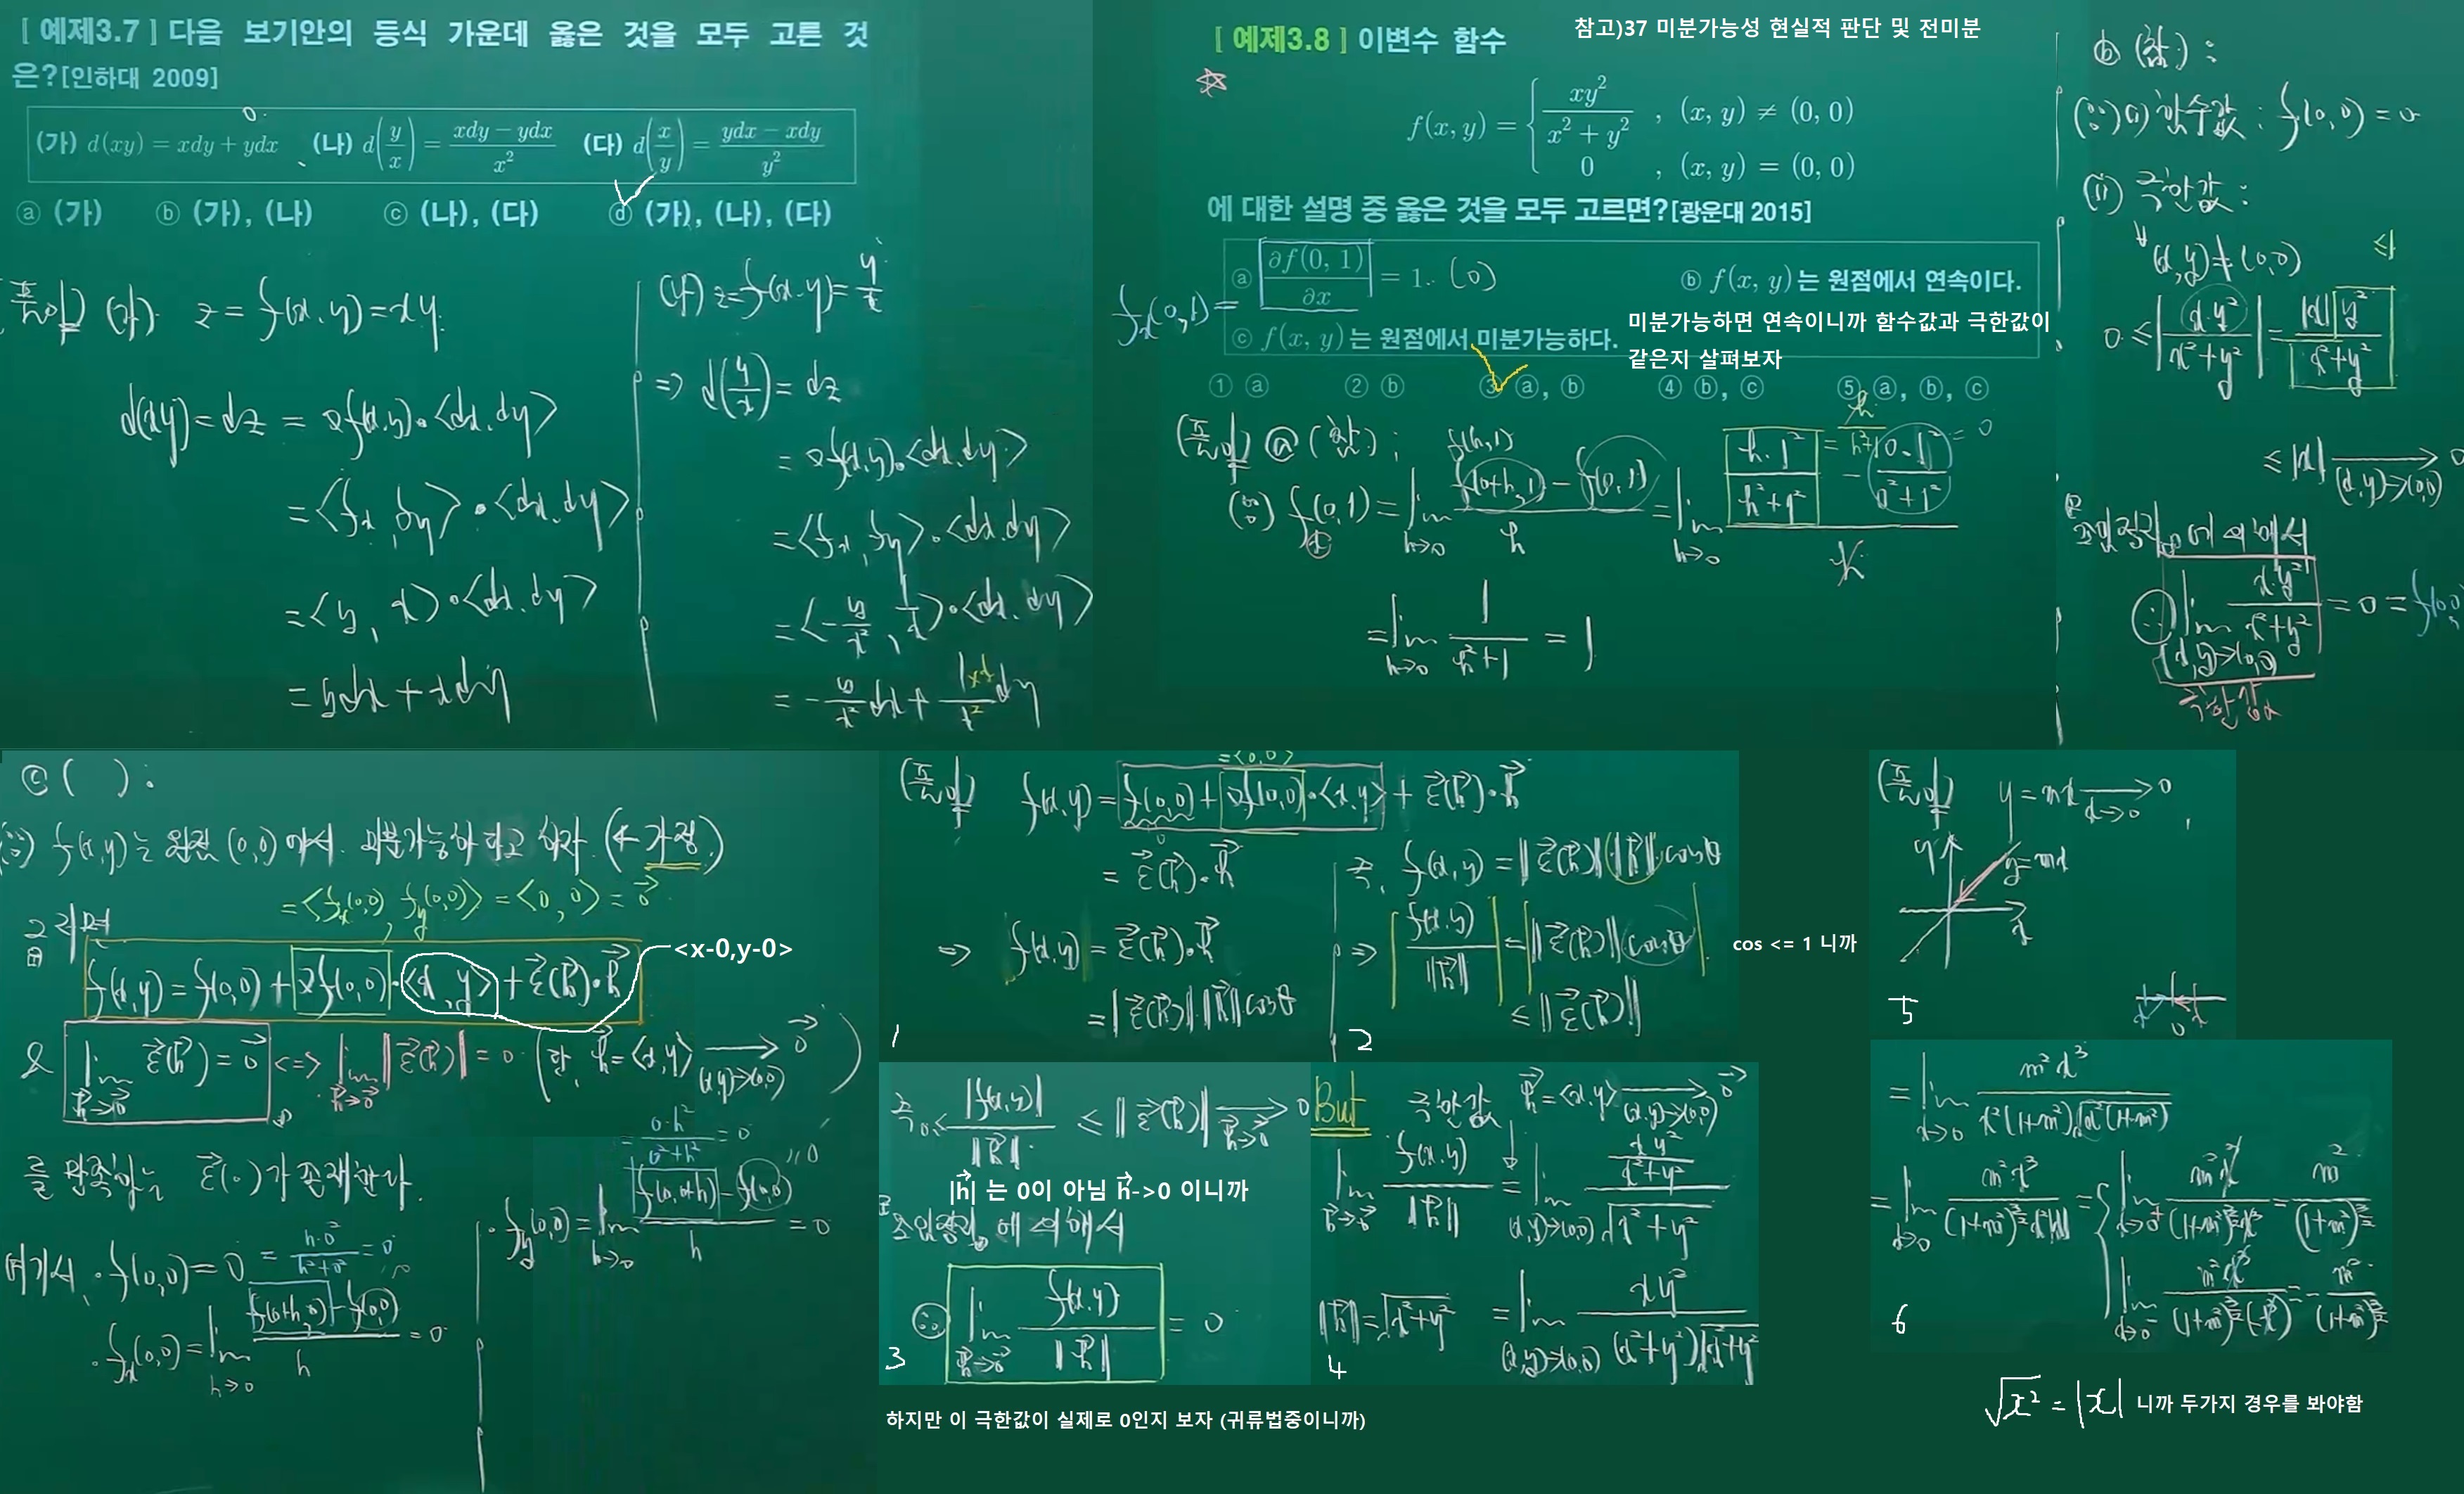 [ 예제3.7 ] 다음 보기안의 등식 가운데 옳은 것을 모두 고른 것
은?[인하대 2009]
(가) d(xy) = xdy + ydx (나) d(y/x) = (xdy − ydx)/x² (다) d(x/y) = (ydx − xdy)/y²
ⓐ (가) ⓑ (가), (나) ⓒ (나), (다) ⓓ (가), (나), (다)
풀이) (가) z = f(x,y) = xy
d(xy) = dz = ∇f(x,y)·<dx,dy>
= <fx, fy>·<dx,dy>
= <y, x>·<dx,dy>
= ydx + xdy
(나) z = f(x,y) = y/x
=> d(y/x) = dz
= ∇f(x,y)·<dx,dy>
= <fx, fy>·<dx,dy>
= <-y/x², 1/x>·<dx,dy>
= -y/x² dx + 1×x/x² dy
[ 예제3.8 ] 이변수 함수
참고)37 미분가능성 현실적 판단 및 전미분
f(x, y) = { xy²/(x² + y²) , (x, y) ≠ (0, 0)
0 , (x, y) = (0, 0)
에 대한 설명 중 옳은 것을 모두 고르면?[광운대 2015]
fx(0,1) =
ⓐ ∂f(0, 1)/∂x = 1. (0)
ⓑ f(x, y)는 원점에서 연속이다.
ⓒ f(x, y)는 원점에서 미분가능하다.
미분가능하면 연속이니까 함수값과 극한값이
같은지 살펴보자
① ⓐ ② ⓑ ③ ⓐ, ⓑ ④ ⓑ, ⓒ ⑤ ⓐ, ⓑ, ⓒ
(풀이) ⓐ (참) ;
f(h,1)
(∵) fx(0,1) = lim h→0 (f(0+h,1) − f(0,1))/h = lim h→0 (h·1²/(h²+1²) − 0·1²/(0²+1²))/h
= h/(h²+1)
= 0
= lim h→0 1/(h²+1) = 1
ⓑ (참) :
(∵) (i) 함수값 : f(0,0) = 0
(ii) 극한값 :
∀(x,y) ≠ (0,0)
≤1
0 ≤ |x·y²/(x²+y²)| = |x|y²/(x²+y²)
≤ |x| → 0 (x,y)→(0,0)
조임정리에 의해서
∴ lim (x,y)→(0,0) x·y²/(x²+y²) = 0 = f(0,0)
극한값
ⓒ ( ) :
(∵) f(x,y)는 원점 (0,0)에서 미분가능하다고 하자. (← 가정)
= <fx(0,0), fy(0,0)> = <0, 0> = 0⃗
그러면
f(x,y) = f(0,0) + ∇f(0,0)·<x,y> + ε⃗(h⃗)·h⃗
<x-0,y-0>
& lim h⃗→0⃗ ε⃗(h⃗) = 0⃗ <=> lim h⃗→0⃗ ‖ε⃗(h⃗)‖ = 0 (단, h⃗ = <x,y> → 0⃗ (x,y)→(0,0))
를 만족하는 ε⃗(·)가 존재한다.
여기서, · f(0,0) = 0
= h·0²/(h²+0²) = 0
· fx(0,0) = lim h→0 (f(0+h,0) − f(0,0))/h = 0
= 0·h²/(0²+h²) = 0
· fy(0,0) = lim h→0 (f(0,0+h) − f(0,0))/h = 0
= <0,0>
(풀이) f(x,y) = f(0,0) + ∇f(0,0)·<x,y> + ε⃗(h⃗)·h⃗
= ε⃗(h⃗)·h⃗
=> f(x,y) = ε⃗(h⃗)·h⃗
= ‖ε⃗(h⃗)‖‖h⃗‖cosθ
1
즉, f(x,y) = ‖ε⃗(h⃗)‖‖h⃗‖cosθ
=> |f(x,y)/‖h⃗‖| = |‖ε⃗(h⃗)‖cosθ|
cos <= 1 니까
≤ ‖ε⃗(h⃗)‖
2
즉 0 ≤ |f(x,y)|/‖h⃗‖ ≤ ‖ε⃗(h⃗)‖ → 0 h⃗→0⃗
|h⃗| 는 0이 아님 h⃗->0 이니까
조임정리에 의해서
∴ lim h⃗→0⃗ f(x,y)/‖h⃗‖ = 0
3
하지만 이 극한값이 실제로 0인지 보자 (귀류법중이니까)
But 극한값 h⃗ = <x,y> → 0⃗ (x,y)→(0,0)
lim h⃗→0⃗ f(x,y)/‖h⃗‖ = lim (x,y)→(0,0) (xy²/(x²+y²))/√(x²+y²)
‖h⃗‖ = √(x²+y²)
= lim (x,y)→(0,0) xy²/((x²+y²)√(x²+y²))
4
(풀이) y = mx → 0 x→0
y
y=mx
x
0
5
= lim x→0 m²x³/(x²(1+m²)√(x²(1+m²)))
= lim x→0 m²x³/((1+m²)^(3/2) x²|x|) = { lim x→0+ m²x³/((1+m²)^(3/2) x³) = m²/(1+m²)^(3/2)
lim x→0- m²x³/((1+m²)^(3/2)(-x³)) = -m²/(1+m²)^(3/2)
6
√x² = |x| 니까 두가지 경우를 봐야함